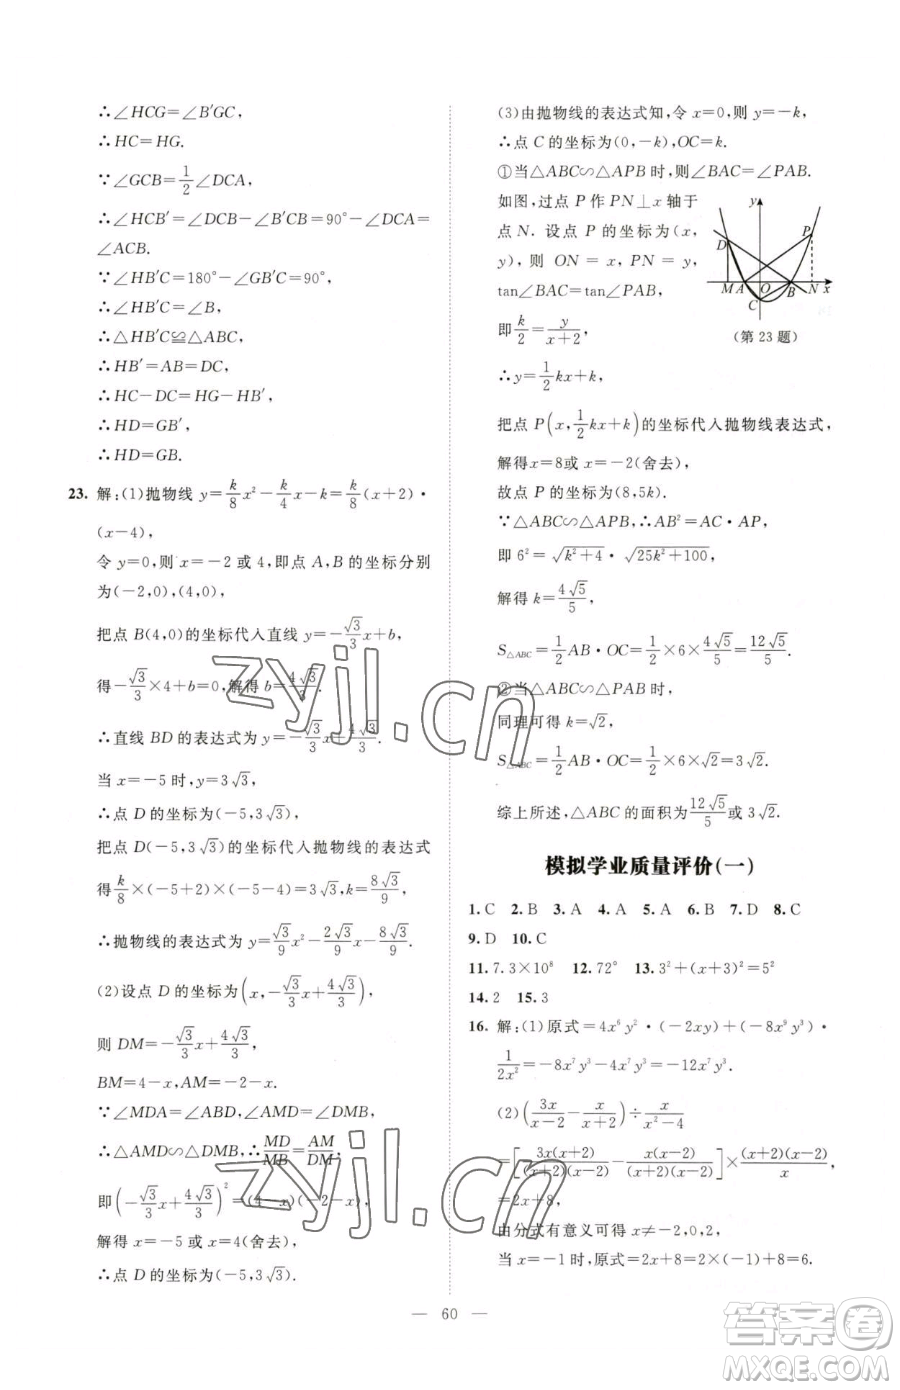 ∴∠HCG=∠B′GC,
∴HC=HG.
∵∠GCB=1/2∠DCA,
∴∠HCB′=∠DCB-∠B′CB=90°-∠DCA=
∠ACB.
∵∠HB′C=180°-∠GB′C=90°,
∴∠HB′C=∠B,
∴△HB′C≌△ABC,
∴HB′=AB=DC,
∴HC-DC=HG-HB′,
∴HD=GB′,
∴HD=GB.
23. 解:(1)抛物线 y=k/8x²-k/4x-k=k/8(x+2)·
(x-4),
令 y=0,则 x=-2或4,即点 A,B 的坐标分别
为(-2,0),(4,0),
把点 B(4,0)的坐标代入直线 y=-√3/3x+b,
得-√3/3×4+b=0,解得 b=4√3/3.
∴直线 BD 的表达式为 y=-√3/3x+4√3/3.
当 x=-5 时,y=3√3,
∴点 D 的坐标为(-5,3√3),
把点 D(-5,3√3)的坐标代入抛物线的表达式
得 k/8×(-5+2)×(-5-4)=3√3,k=8√3/9,
∴抛物线的表达式为 y=√3/9x²-2√3/9x-8√3/9.
(2)设点 D 的坐标为(x,-√3/3x+4√3/3),
则 DM=-√3/3x+4√3/3,
BM=4-x,AM=-2-x,
∵∠MDA=∠ABD,∠AMD=∠DMB,
∴△AMD∽△DMB,∴MD/MB=AM/DM,
即(-√3/3x+4√3/3)²=(4-x)(-2-x),
解得 x=-5 或 x=4(舍去),
∴点 D 的坐标为(-5,3√3).
(3)由抛物线的表达式知,令 x=0,则 y=-k,
∴点 C 的坐标为(0,-k),OC=k.
①当△ABC∽△APB 时,则∠BAC=∠PAB.
如图,过点 P 作 PN⊥x 轴于
点 N. 设点 P 的坐标为(x,
y), 则 ON = x, PN = y,
tan∠BAC=tan∠PAB,
即k/2=y/(x+2),
y
D
P
M A O B N x
C
(第23题)
∴y=1/2kx+k,
把点 P(x,1/2kx+k)的坐标代入抛物线表达式,
解得 x=8或 x=-2(舍去),
故点 P 的坐标为(8,5k).
∵△ABC∽△APB,∴AB²=AC·AP,
即 6²=√(k²+4)·√(25k²+100),
解得 k=4√5/5,
S△ABC=1/2AB·OC=1/2×6×4√5/5=12√5/5.
②当△ABC∽△PAB 时,
同理可得 k=√2,
S△ABC=1/2AB·OC=1/2×6×√2=3√2.
综上所述,△ABC 的面积为12√5/5或3√2.
模拟学业质量评价(一)
1. C 2. B 3. A 4. A 5. A 6. B 7. D 8. C
9. D 10. C
11. 7.3×10⁸ 12. 72° 13. 3²+(x+3)²=5²
14. 2 15. 3
16. 解:(1)原式=4x⁶y²·(-2xy)+(-8x⁹y³)·
1/2x²=-8x⁷y³-4x⁷y³=-12x⁷y³.
(2)(3x/(x-2)-x/(x+2))÷x/(x²-4)
=[3x(x+2)/(x+2)(x-2)-x(x-2)/(x+2)(x-2)]×(x+2)(x-2)/x,
=2x+8,
由分式有意义可得 x≠-2,0,2,
当 x=-1 时,原式=2x+8=2×(-1)+8=6.
— 60 —
zyjl.cn
zyjl.cn
答案圈
MXQE.COM